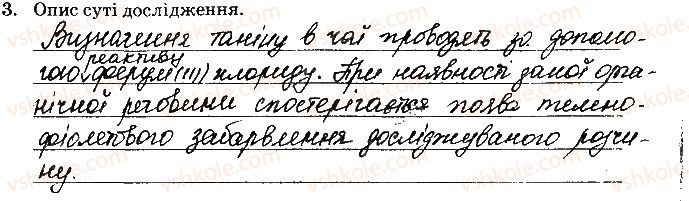 3. Опис суті дослідження.
Визначення таніну в чаї проводять за допомо-
реактиву
гою ферум(III) хлориду. При наявності заної орга-
нічної речовини спостерігається поява темно-
фіолетового забарвлення досліджуваного розчи-
ну.